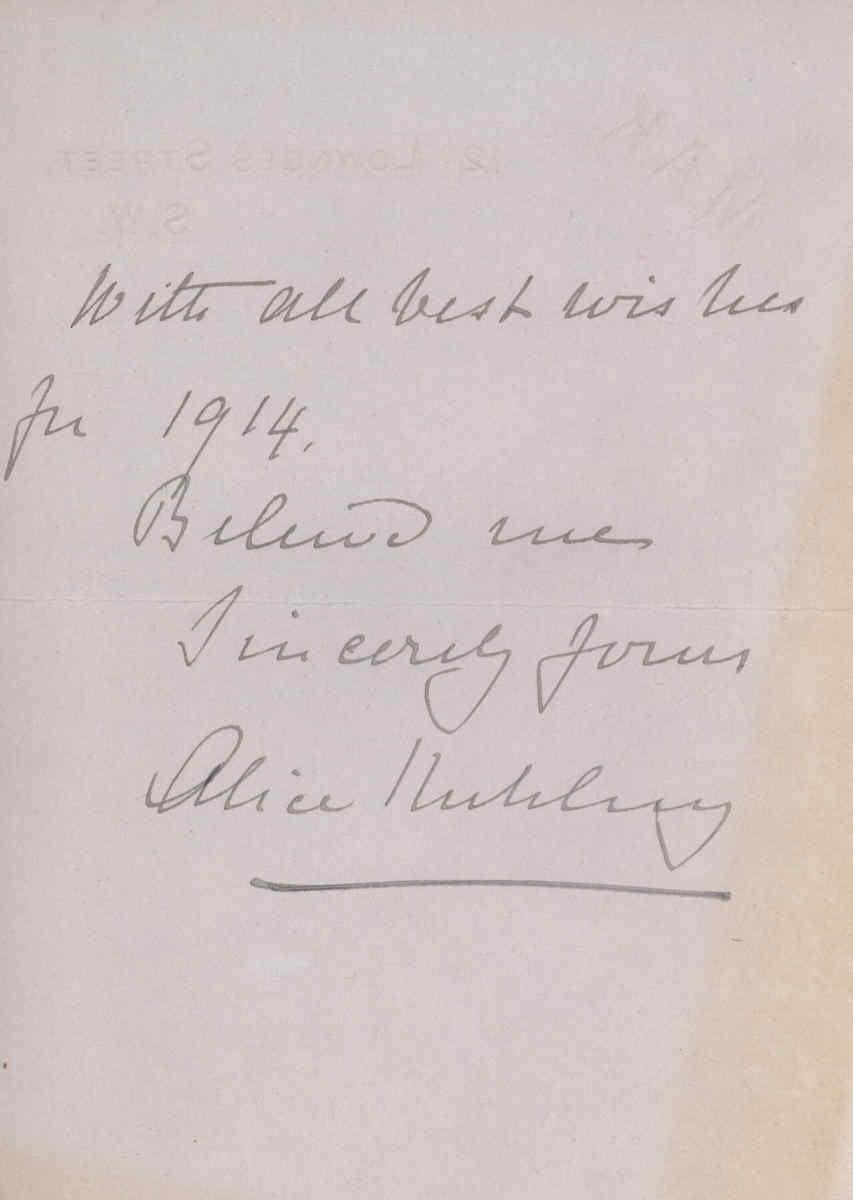 12 LOWNDES STREET,
S.W.
With all best wishes
for 1914.
Believe me
Sincerely yours
Alice